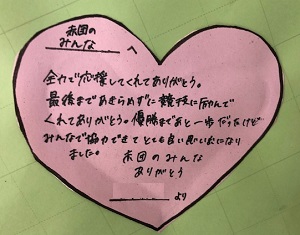 赤団の
みんな へ
全力で応援してくれてありがとう。
最後まであきらめずに競技に励んで
くれてありがとう。優勝まであと一歩だったけど
みんなで協力できてとても良い思い出になり
ました。 赤団のみんな
ありがとう
より